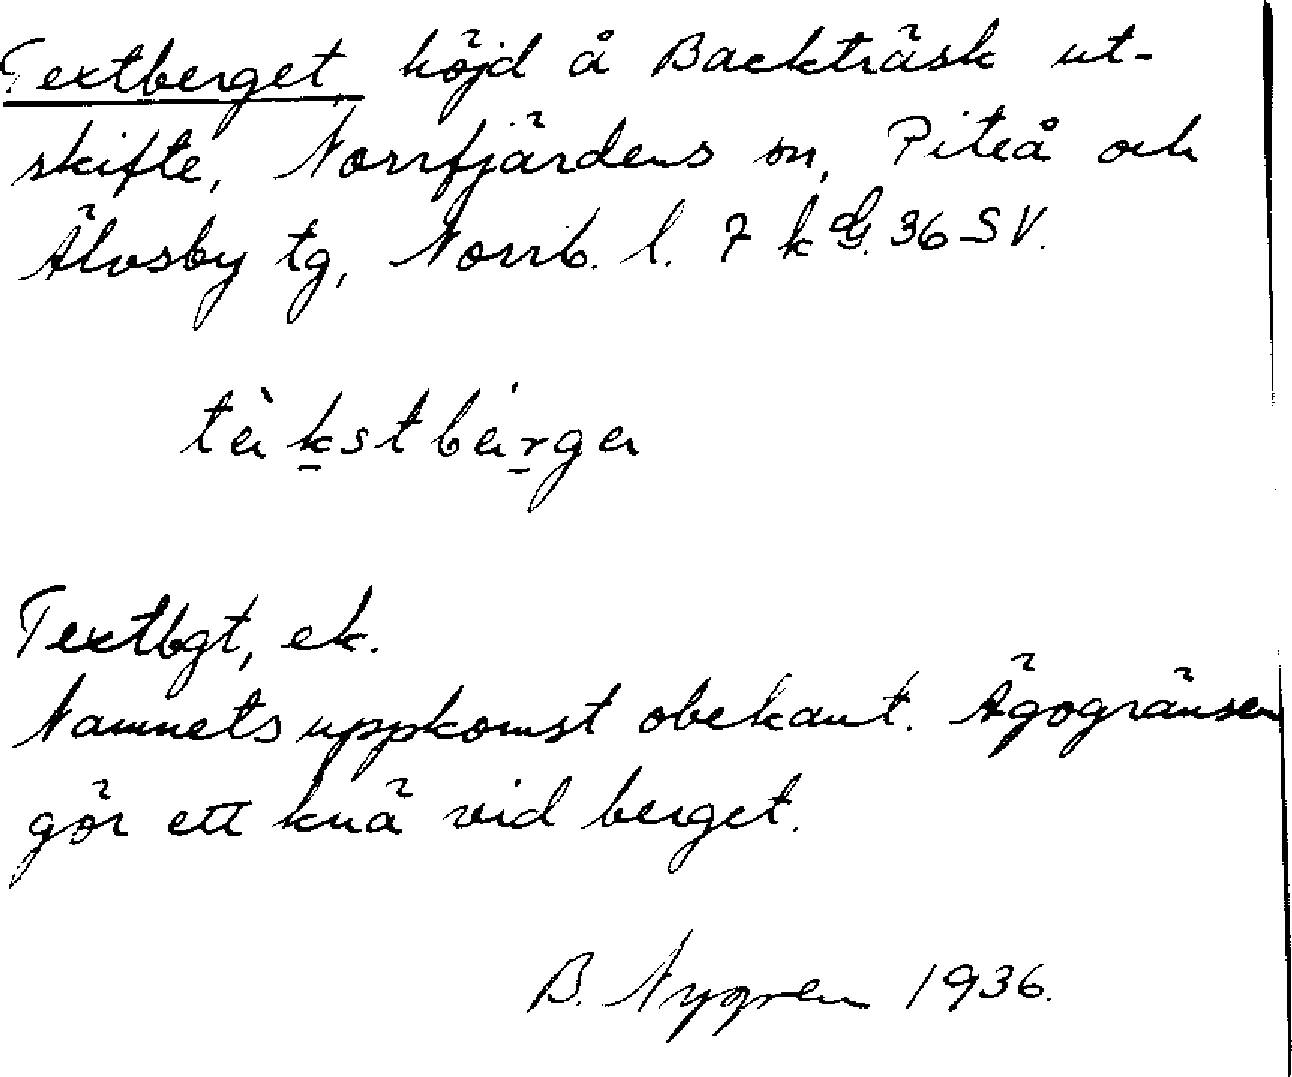 Textberget, höjd å Backträsk ut-
skifte, Norrfjärdens sn, Piteå och
Älvsby tg, Norrb. l. 7 k G. 36 SV.
tèkstbérga
Textbgt, ek.
Namnets uppkomst obekant. Ägogränsen
gör ett knä vid berget.
B. Nygren 1936.